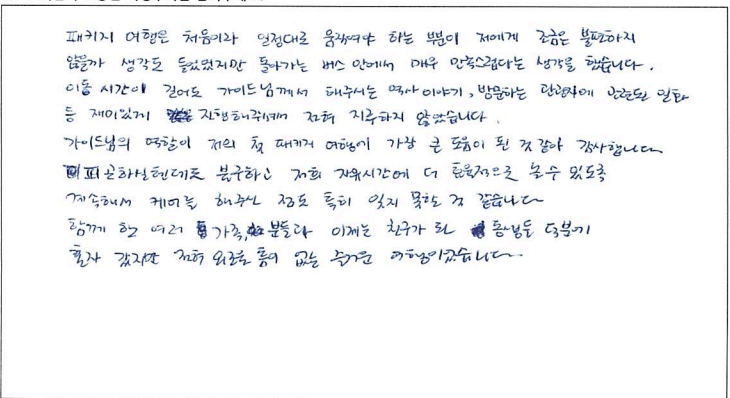 패키지 여행은 처음이라 일정대로 움직여야 하는 부분이 저에게 조금은 불편하지
않을까 생각도 들었었지만 돌아가는 버스 안에서 매우 만족스럽다는 생각을 했습니다.
이동 시간이 길어도 가이드님께서 해주시는 역사 이야기, 방문하는 관광지에 관련된 일화
등 재미있게 진행해주셔서 전혀 지루하지 않았습니다.
가이드님의 역할이 저의 첫 패키지 여행에 가장 큰 도움이 된 것 같아 감사합니다
피곤하실텐데도 불구하고 저희 자유시간에 더 효율적으로 놀 수 있도록
계속해서 케어를 해주신 점도 특히 잊지 못할 것 같습니다
함께 한 여러 가족분들과 이제는 친구가 된 동생들 덕분에
혼자 갔지만 전혀 외로울 틈이 없는 즐거운 여행이었습니다.